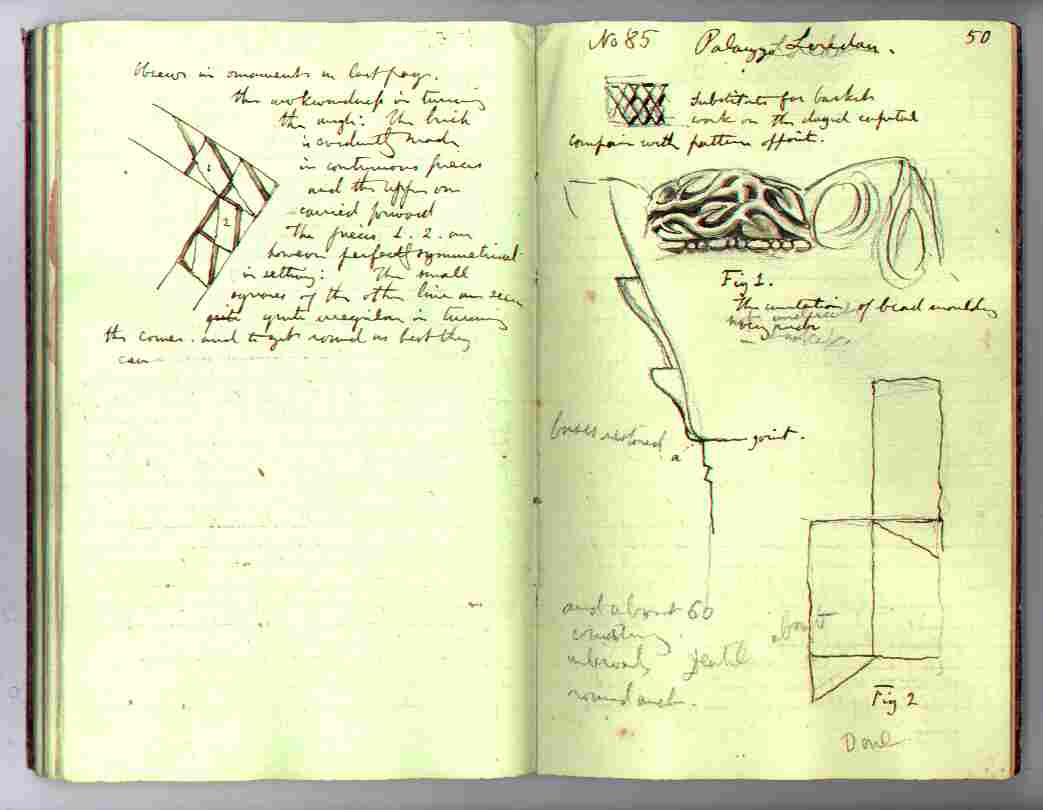 Observe in ornaments on last page.
the awkwardness in turning
the angle: The brick
is evidently made
in continuous pieces
and the upper one
carried forward
The pieces 1. 2. are
however perfectly symmetrical
in setting: The small
squares of the other line are seen
quite irregular in turning
the corner. and to get round as best they
can
1
2
No 85 Palazzo Loredan. 50
Substitute for basket
work on the capital
compare with pattern opposite.
Fig 1.
The imitation of bead moulding
very rude
bases restored
a
joint.
and about 60
intervals
round arch.
about
Fig 2
Done